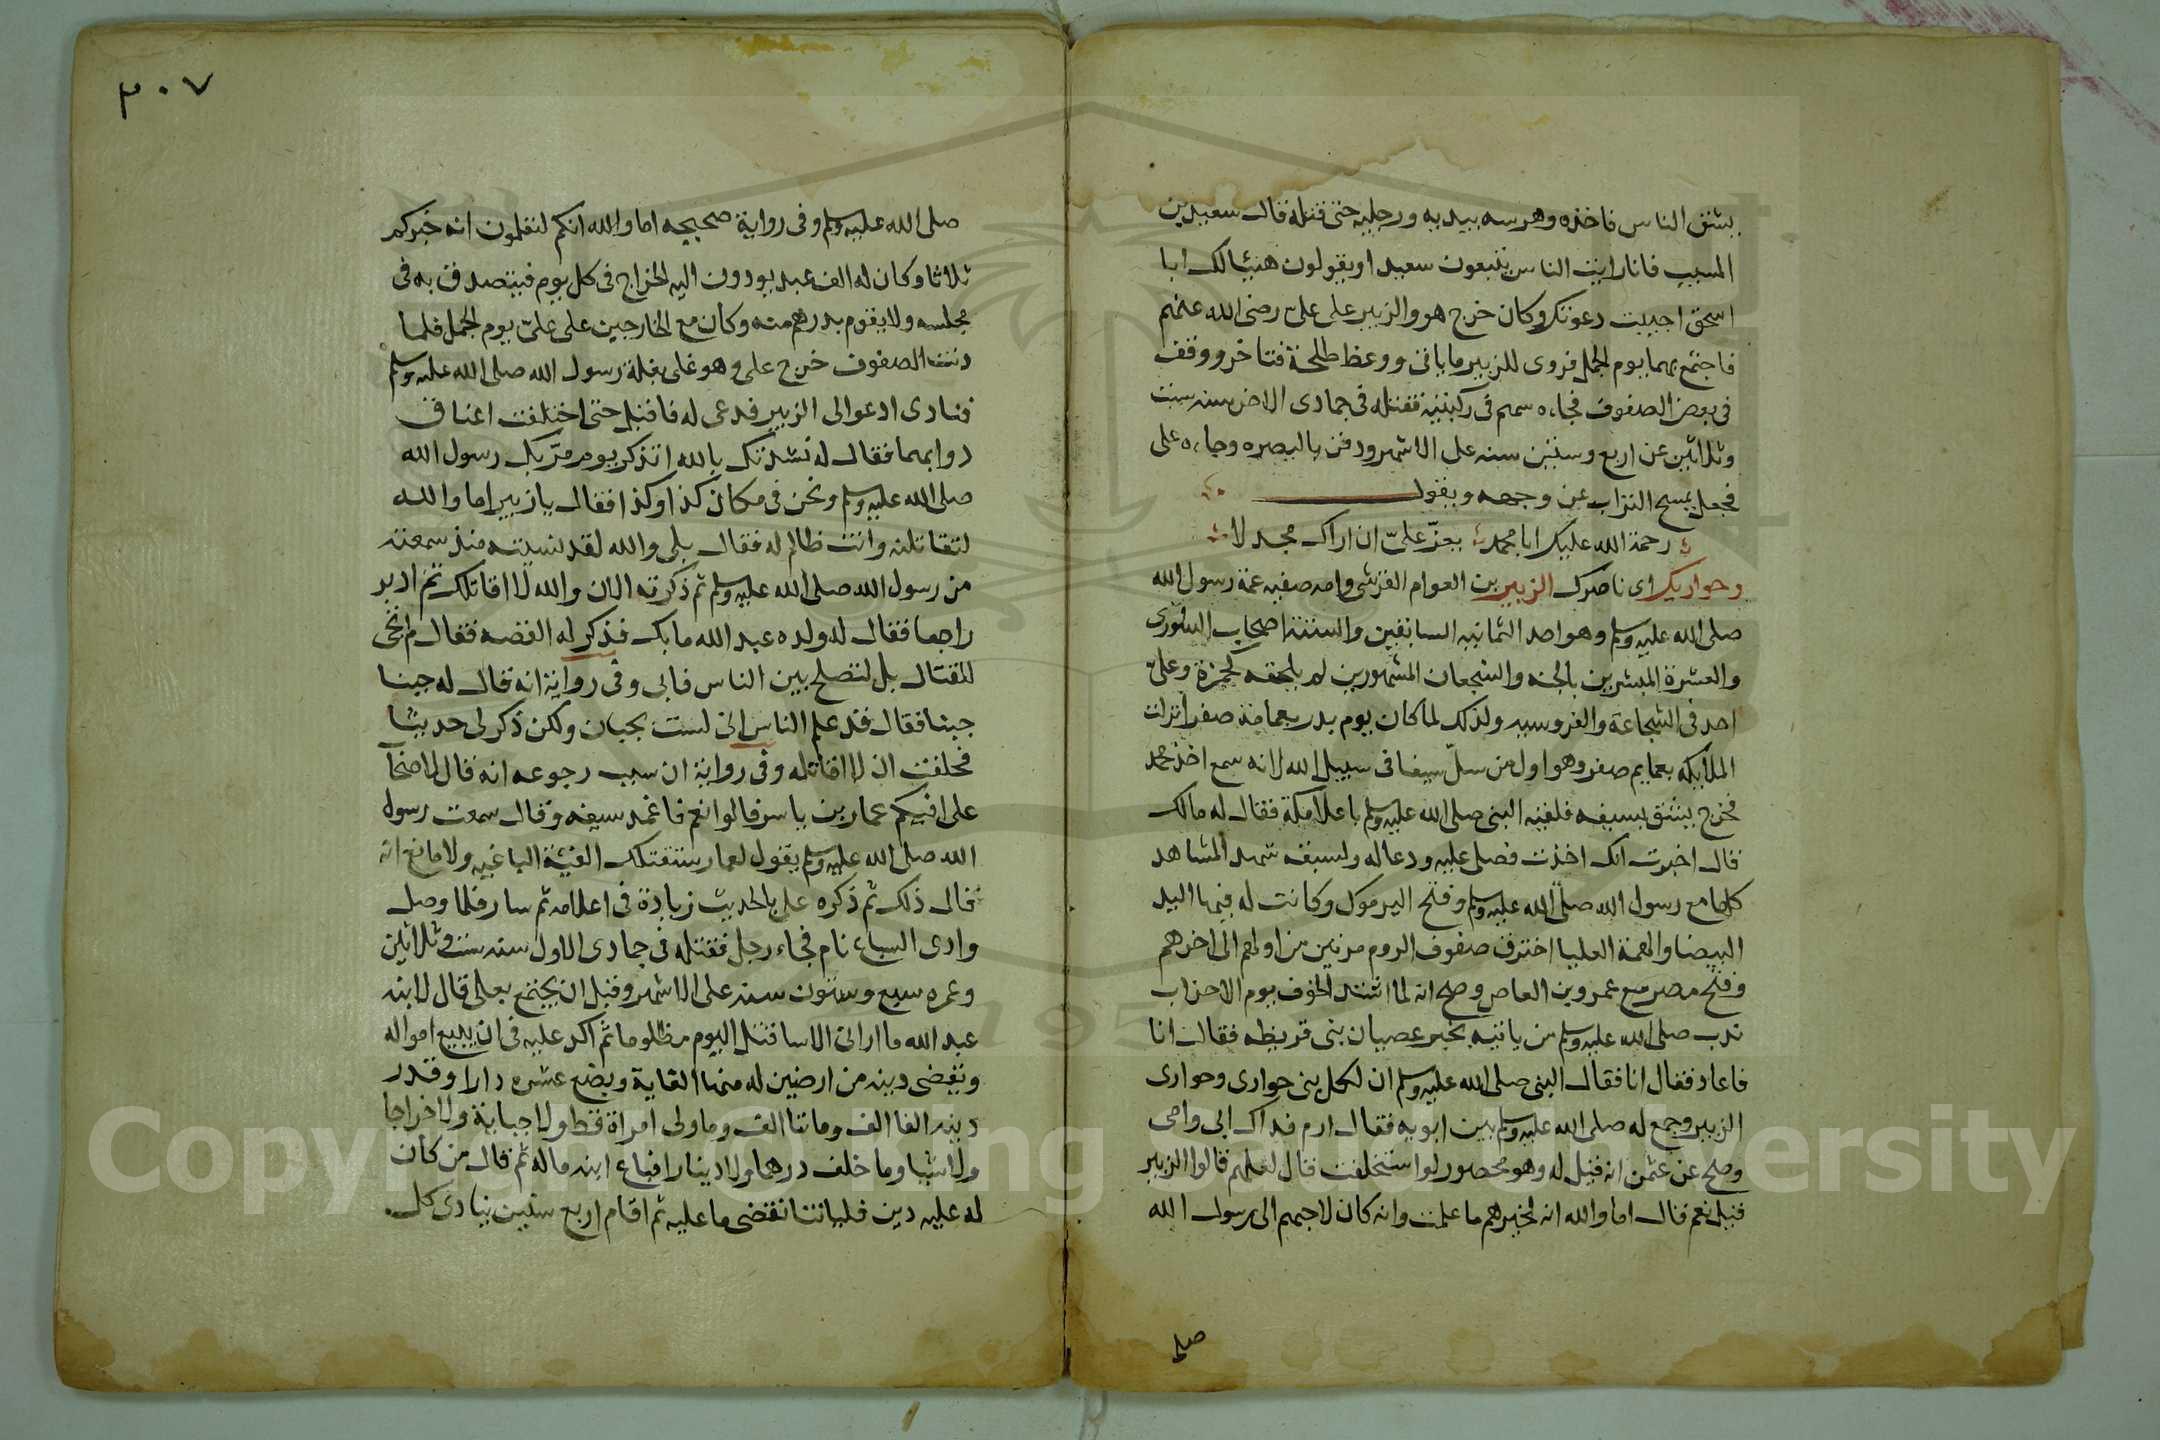 يشق الناس فاخذه وهرسه بيديه ورجليه حتى قتله قال سعيد بن
المسيب فانا رايت الناس يتبعون سعيدا ويقولون هنيئا لك ابا
اسحق اجيبت دعوتك وكان خرج هو والزبير على علىّ رضى الله عنهم
فاجتمع بهما يوم الجمل فروى للزبير ما ياتى ووعظ طلحة فتاخر ووقف
فى بعض الصفوف فجاءه سهم فى ركبتيه فقتله فى جمادى الاخر سنه ست
وثلاثين عن اربع وستين سنه على الاشهر ودفن بالبصره وجاءه على
فجعل يمسح التراب عن وجهه ويقول
رحمة الله عليك ابا محمد يعزّ علىّ ان اراك مجدلا
وحواريك اى ناصرك الزبير بن العوام القرشى وامه صفيه عمة رسول الله
صلى الله عليه وسلم وهو احد الثمانيه السابقين والستة اصحاب الشورى
والعشرة المبشرين بالجنه والشجعان المشهورين لم يلحقه كحمزة وعلىّ
احد فى الشجاعة والفروسيه ولذلك لما كان يوم بدر بعمامة صفر انزلت
الملايكه بعمايم صفر وهو اول من سلّ سيفا فى سبيل الله لانه سمع اخذ محمد
فخرج يشق بسيفه فلقيه النبى صلى الله عليه وسلم باعلا مكة فقال له مالك
قال اخبرت انك اخذت فصلى عليه ودعا له ولسيفه شهد المشاهد
كلها مع رسول الله صلى الله عليه وسلم وفتح اليرموك وكانت له فيها اليد
البيضا والهمة العليا اخترق صفوف الروم مرتين من اولهم الى اخرهم
وفتح مصر مع عمرو بن العاص وصح انه لما اشتد الخوف يوم الاحزاب
ندب صلى الله عليه وسلم من ياتيه بخبر عصيان بنى قريظه فقال انا
فاعاد فقال انا فقال النبى صلى الله عليه وسلم ان لكل نبى حوارى وحوارى
الزبير وجمع له صلى الله عليه وسلم بين ابويه فقال ارم فداك ابى وامى
وصح عن عثمن انه قيل له وهو محصور لو استخلفت قال لعلهم قالوا الزبير
قيل نعم قال اما والله انه لخيرهم ما علمت وانه كان لاحبهم الى رسول الله
صلى
٣٠٧
صلى الله عليه وسلم وفى رواية صحيحه اما والله انكم لتعلمون انه خيركم
ثلاثا وكان له الف عبد يودون اليه الخراج فى كل يوم فيتصدق به فى
مجلسه ولا يقوم بدرهم منه وكان مع الخارجين على علىّ يوم الجمل فلما
دنت الصفوف خرج على وهو على بغلة رسول الله صلى الله عليه وسلم
فنادى ادعوا لى الزبير فدعى له فاقبل حتى اختلفت اعناق
دوابهما فقال له نشدتك بالله اتذكر يوم مرّ بك رسول الله
صلى الله عليه وسلم ونحن فى مكان كذا وكذا فقال يا زبير اما والله
لتقاتلنه وانت ظالم له فقال بلى والله لقد نسيته منذ سمعته
من رسول الله صلى الله عليه وسلم ثم ذكرته الان والله لا اقاتلك ثم ادبر
راجعا فقال له ولده عبد الله ما بك فذكر له القصه فقال لم تجى
للقتال بل لتصلح بين الناس فابى وفى رواية انه قال له جبنا
جبنا فقال قد علم الناس انى لست بجبان ولكن ذكر لى حديثا
فحلفت ان لا اقاتله وفى رواية ان سبب رجوعه انه قال لاصحاب
على افيكم عمار بن ياسر قالوا نعم فاغمد سيفه وقال سمعت رسول
الله صلى الله عليه وسلم يقول لعمار ستقتلك الفئة الباغيه ولا مانع انه
قال ذلك ثم ذكره على بالحديث زيادة فى اعلامه ثم سار فلما وصل
وادى السباع نام فجاء رجل فقتله فى جمادى الاول سنه ست وثلاثين
وعمره سبع وستون سنه على الاشهر وقبل ان يجتمع بعلى قال لابنه
عبد الله ما ارانى الا ساقتل اليوم مظلوما ثم اكد عليه فى ان يبيع امواله
ويقضى دينه من ارضين له منها الغابة وبضع عشره دارا وقدر
دينه الفا الف وماتا الف وما ولى امراة قط ولا جباية ولا خراجا
ولا شيا وما خلف درهما ولا دينارا فباع ابنه ماله ثم قال من كان
له عليه دين فلياتنا نقضى ما عليه ثم اقام اربع سنين ينادى كل
Copyright © King Saud University
1957